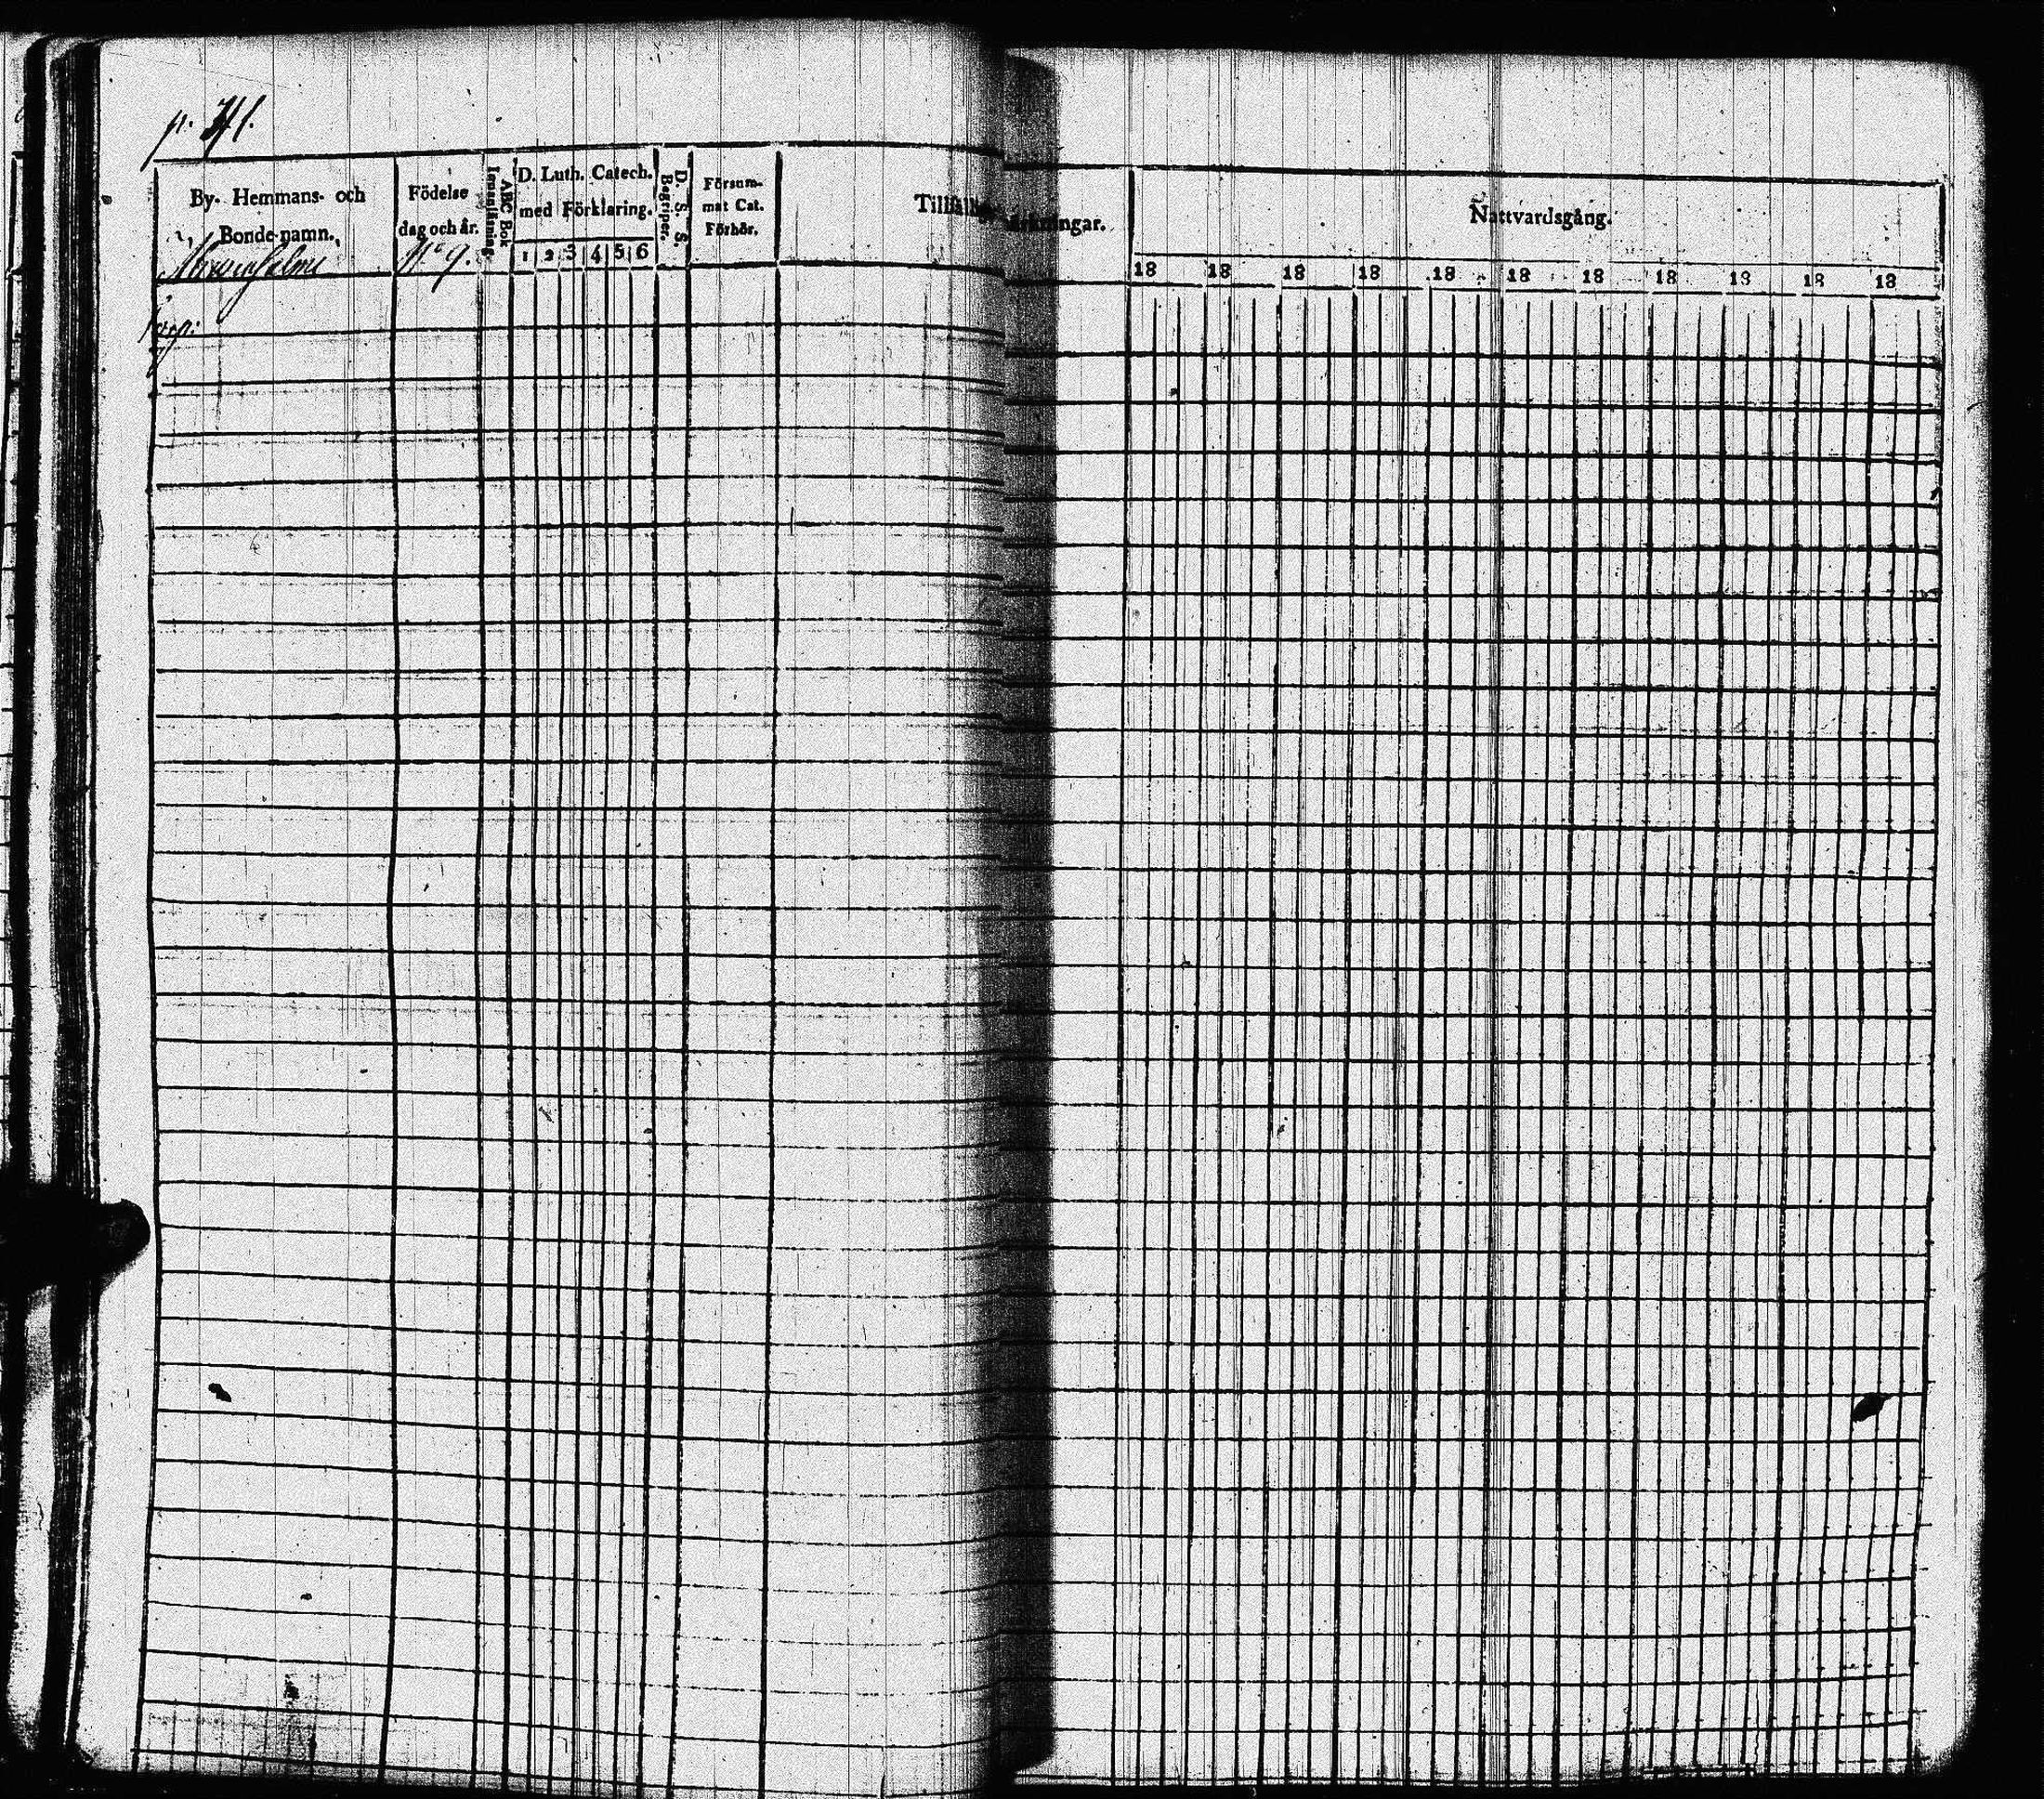 p. 241.
By- Hemmans- och
Bonde-namn.
Födelse
dag och år.
ABC Bok
Innanläsning.
D. Luth. Catech.
med Förklaring.
1 2 3 4 5 6
D. S. S.
Begriper.
Försum-
mat Cat.
Förhör.
N:o 9.
Nattvardsgång.
18 18 18 18 18 18 18 18 18 18 18